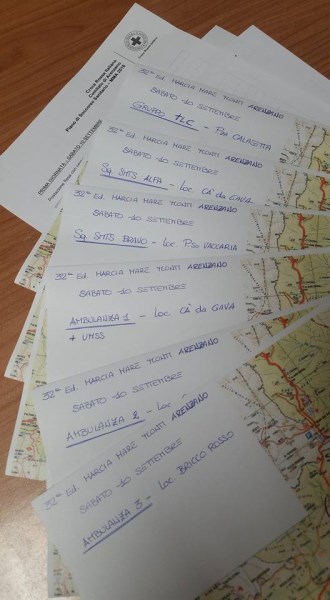 Croce Rossa Italiana
Comitato di Arenzano
Piano di Soccorso Sanitario - MMA 2016
PRIMA GIORNATA - SABATO 10 SETTEMBRE
32ma Ed. MARCIA MARE MONTI ARENZANO
SABATO 10 SETTEMBRE
GRUPPO TLC - Pso CALASETTA
32ma Ed. MARCIA MARE MONTI ARENZANO
SABATO 10 SETTEMBRE
Sq. SMTS ALFA - Loc. CÀ da GAVA
32ma Ed. MARCIA MARE MONTI ARENZANO
SABATO 10 SETTEMBRE
Sq. SMTS BRAVO - Loc Pso VACCARIA
32ma Ed. MARCIA MARE MONTI ARENZANO
SABATO 10 SETTEMBRE
AMBULANZA 1 - Loc. CÀ da GAVA
+ UMSS
32ma Ed. MARCIA MARE MONTI ARENZANO
SABATO 10 SETTEMBRE
AMBULANZA 2 - Loc
32ma Ed. MARCIA MARE MONTI ARENZANO
SABATO 10 SETTEMBRE
AMBULANZA 3 - Loc. BRICCO ROSSO